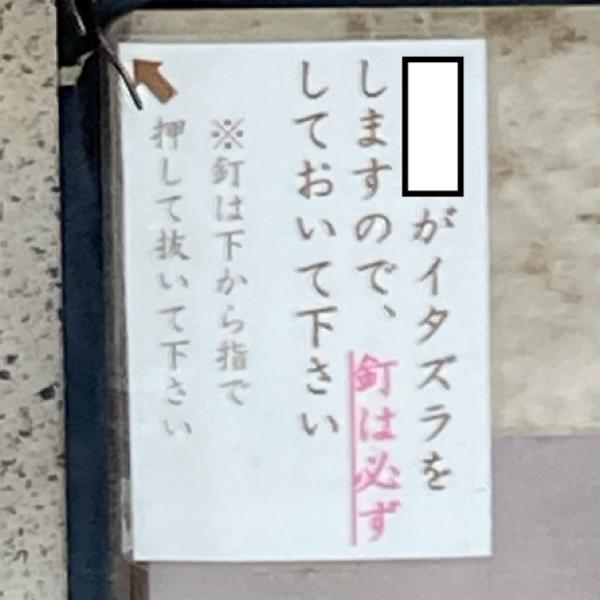 がイタズラを
しますので、釘は必ず
しておいて下さい
※釘は下から指で
押して抜いて下さい